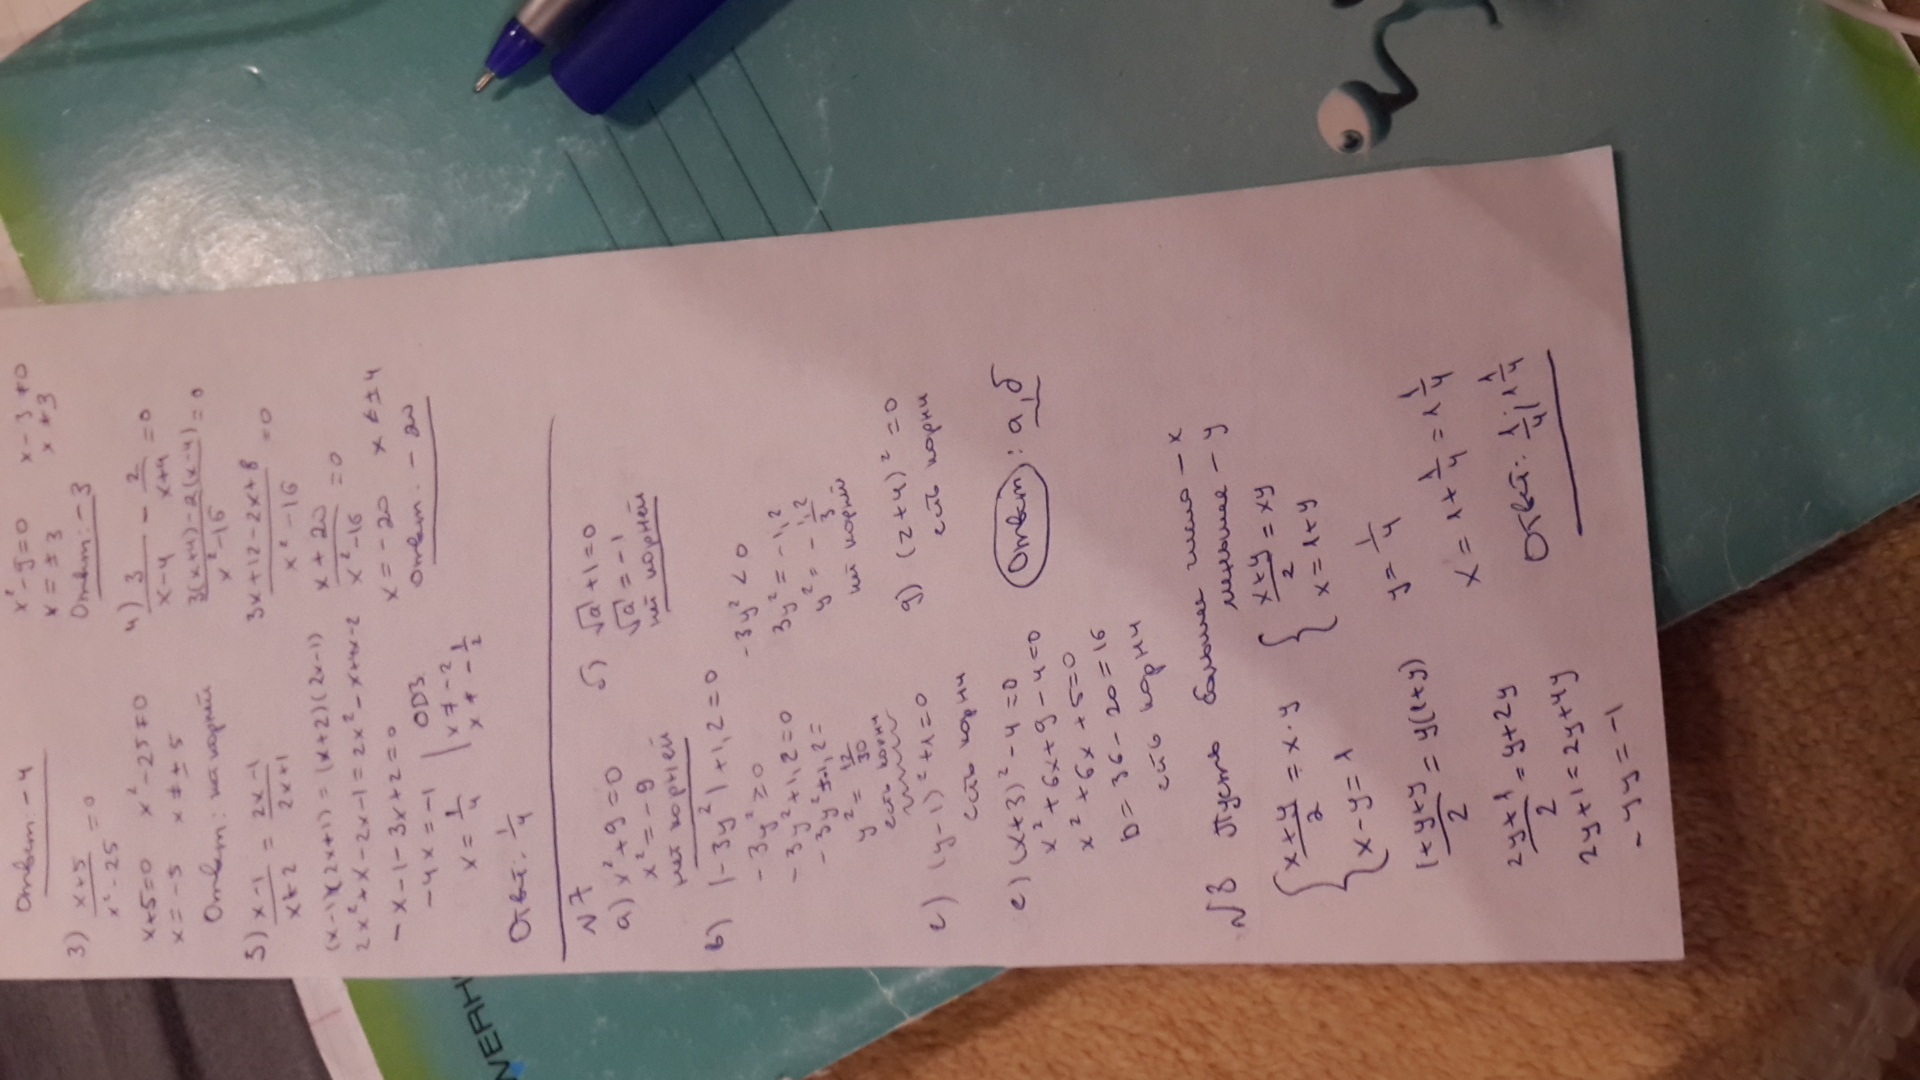 Ответ: -4
x²-9=0 x-3≠0
x=±3 x≠3
Ответ: -3
3) (x+5)/(x²-25) = 0
x+5=0 x²-25≠0
x=-5 x≠±5
Ответ: нет корней
4) 3/(x-4) - 2/(x+4) = 0
(3(x+4)-2(x-4))/(x²-16) = 0
(3x+12-2x+8)/(x²-16) = 0
(x+20)/(x²-16) = 0
x=-20 x≠±4
Ответ: -20
5) (x-1)/(x+2) = (2x-1)/(2x+1)
(x-1)(2x+1)=(x+2)(2x-1)
2x²+x-2x-1=2x²-x+4x-2
-x-1-3x+2=0
-4x=-1 ОДЗ
x=1/4 x≠-2
x≠-1/2
Ответ: 1/4
№7
а) x²+9=0
x²=-9
нет корней
б) √a+1=0
√a=-1
нет корней
в) |-3y²|+1,2=0
-3y²≥0
-3y²+1,2=0
-3y²+1,2=
y²=12/30
есть корни
-3y²<0
3y²=-1,2
y²=-1,2/3
нет корней
г) (y-1)²+1=0
есть корни
д) (z+4)²=0
есть корни
е) (x+3)²-4=0
x²+6x+9-4=0
x²+6x+5=0
D=36-20=16
есть корни
Ответ: а,б
№8 Пусть большее число - x
меньшее - y
{(x+y)/2 = x·y
{x-y=1
{(x+y)/2 = xy
{x=1+y
(1+y+y)/2 = y(1+y)
y=1/4
(2y+1)/2=y+2y
x=1+1/4=1 1/4
2y+1=2y+4y
-4y=-1
Ответ: 1/4; 1 1/4